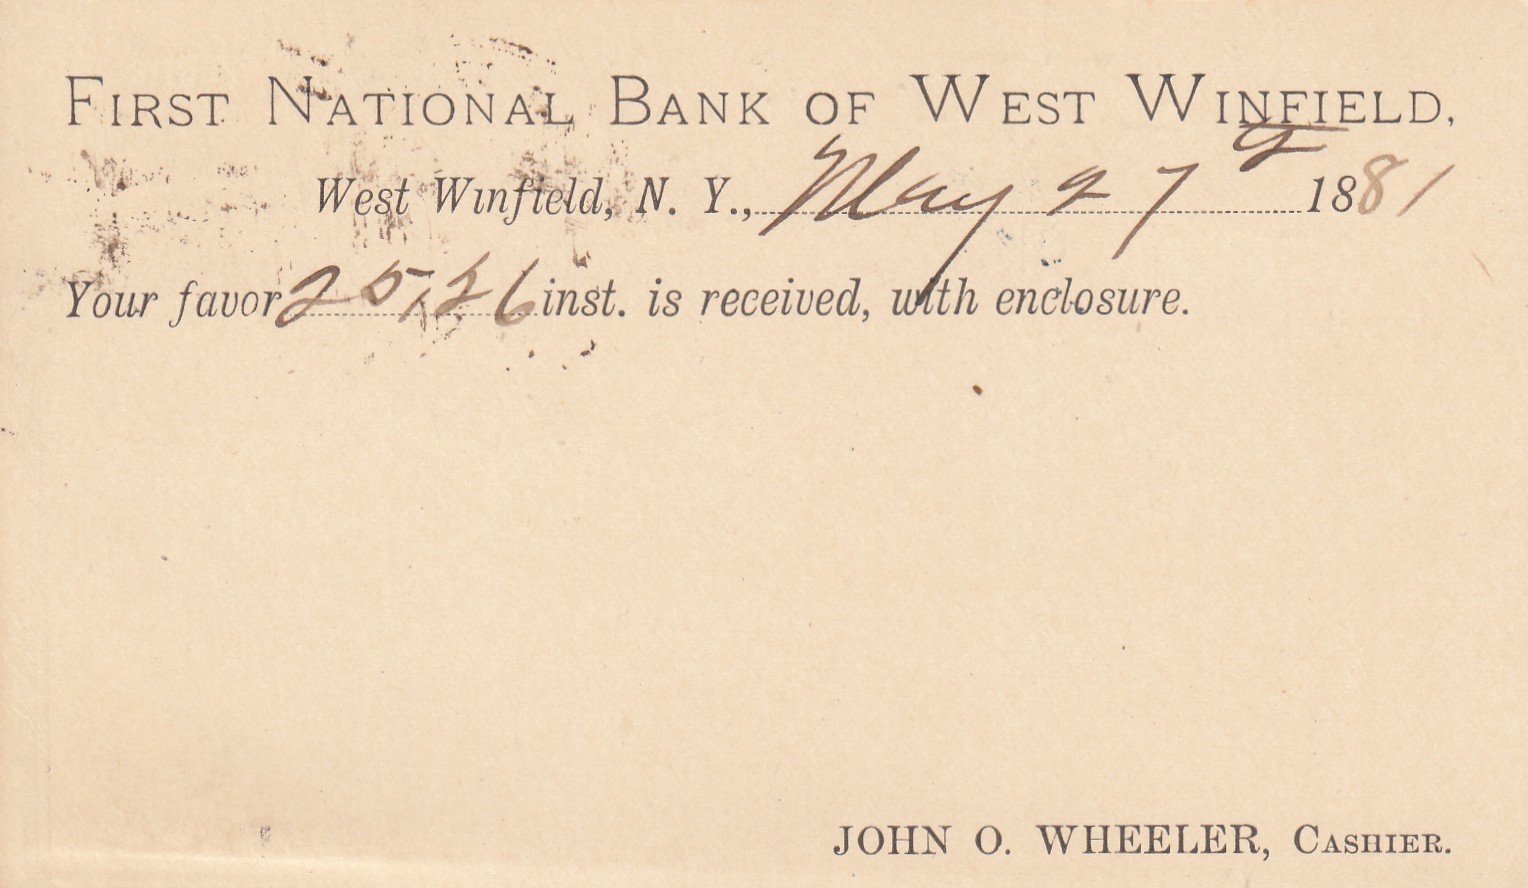 First National Bank of West Winfield,
West Winfield, N. Y., May 27 1881
Your favor 25, 26 inst. is received, with enclosure.
JOHN O. WHEELER, Cashier.